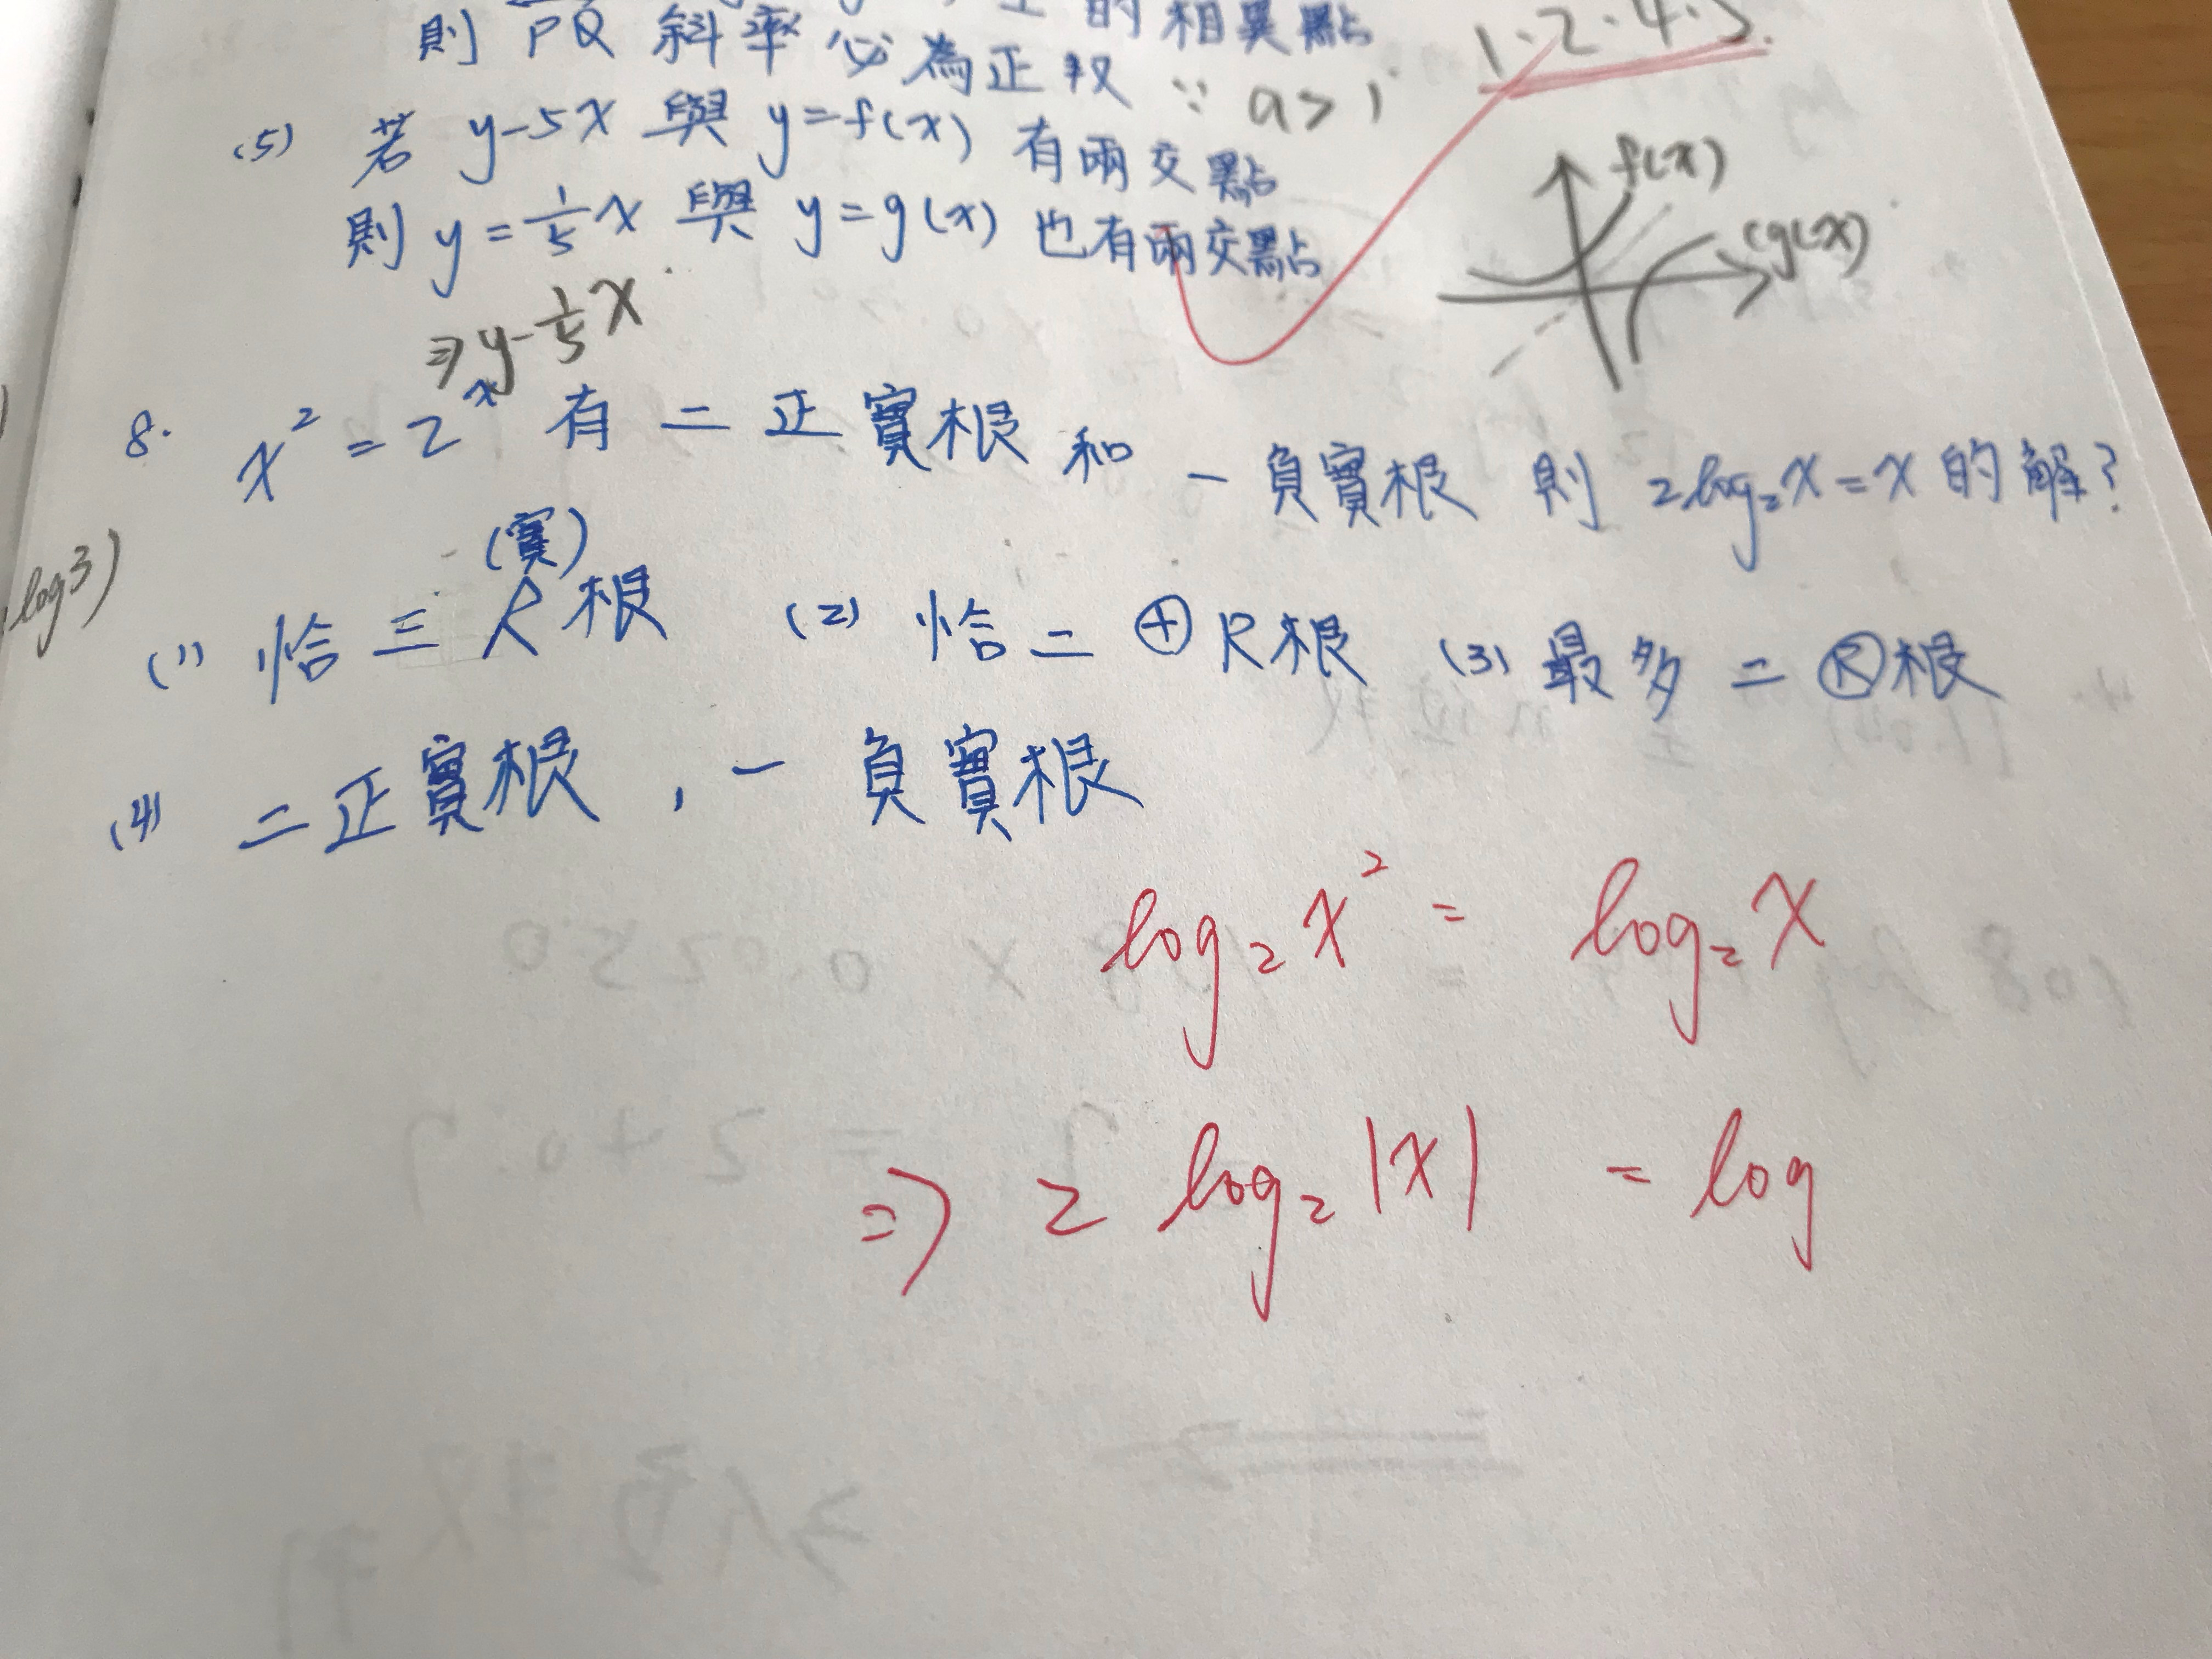 的相異點
則 PQ 斜率必為正数 ∵ a > 1
1.2.4.5.
(5) 若 y-5x 與 y=f(x) 有兩交點
則 y=1/5x 與 y=g(x) 也有兩交點
⇒ y-1/5x
f(x)
g(x)
8. x²=2ˣ 有二正實根和一負實根 則 2log₂x=x 的解?
log3)
(實)
(1) 恰三R根 (2) 恰二⊕R根 (3) 最多二Ⓡ根
(4) 二正實根, 一負實根
log₂x² = log₂x
⇒ 2 log₂|x| = log